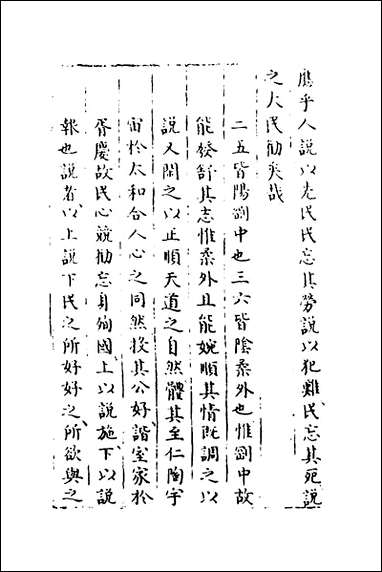 應乎人說以先民民忘其勞說以犯難民忘其死說
之大民勸矣哉
二五皆陽剛中也三六皆陰柔外也惟剛中故
能發舒其志惟柔外且能婉順其情既調之以
說又閑之以正順天道之自然體其至仁陶宇
宙於太和合人心之同然投其公好諧室家於
胥慶故民心競勸忘身殉國上以說施下以說
報也說者以上說下民之所好好之所欲與之